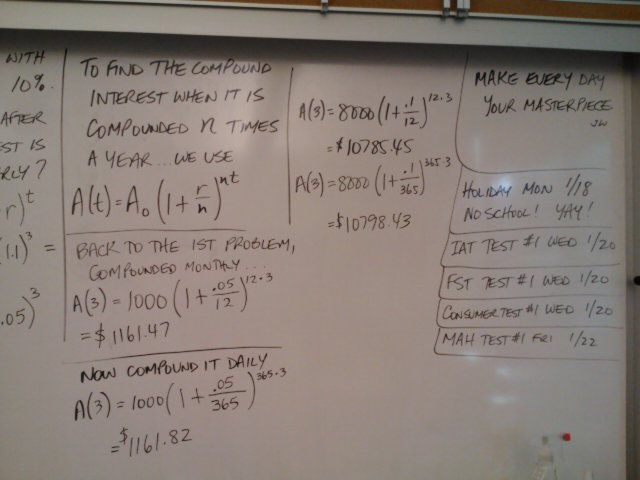 WITH
10%.
AFTER
EST IS
RLY?
r)^t
(1.1)^3 =
.05)^3
TO FIND THE COMPOUND
INTEREST WHEN IT IS
COMPOUNDED n TIMES
A YEAR...WE USE
A(t) = A₀(1 + r/n)^nt
BACK TO THE 1ST PROBLEM,
COMPOUNDED MONTHLY...
A(3) = 1000(1 + .05/12)^12·3
= $1161.47
NOW COMPOUND IT DAILY
A(3) = 1000(1 + .05/365)^365·3
= $1161.82
A(3) = 8000(1 + .1/12)^12·3
= $10785.45
A(3) = 8000(1 + .1/365)^365·3
= $10798.43
MAKE EVERY DAY
YOUR MASTERPIECE
JW
HOLIDAY MON 1/18
NO SCHOOL! YAY!
IAT TEST #1 WED 1/20
FST TEST #1 WED 1/20
CONSUMER TEST #1 WED 1/20
MAH TEST #1 FRI 1/22